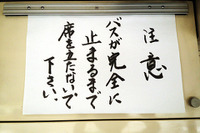 注意
バスが完全に
止まるまで
席を立たないで
下さい。